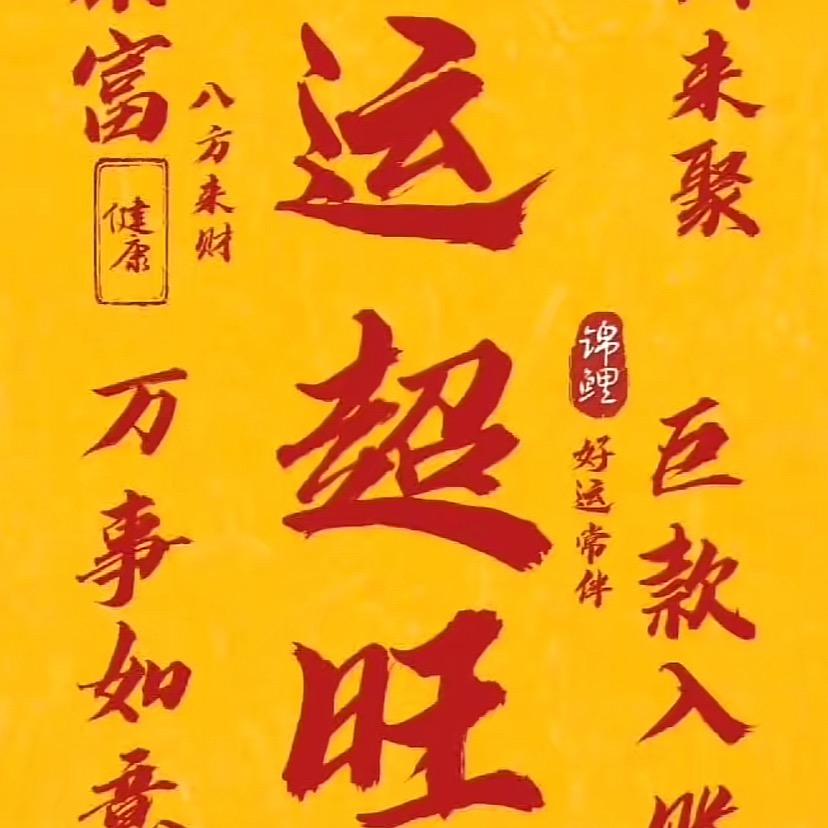 富
健康
八方来财
万事如意
运超旺
锦鲤
好运常伴
来聚
巨款入账